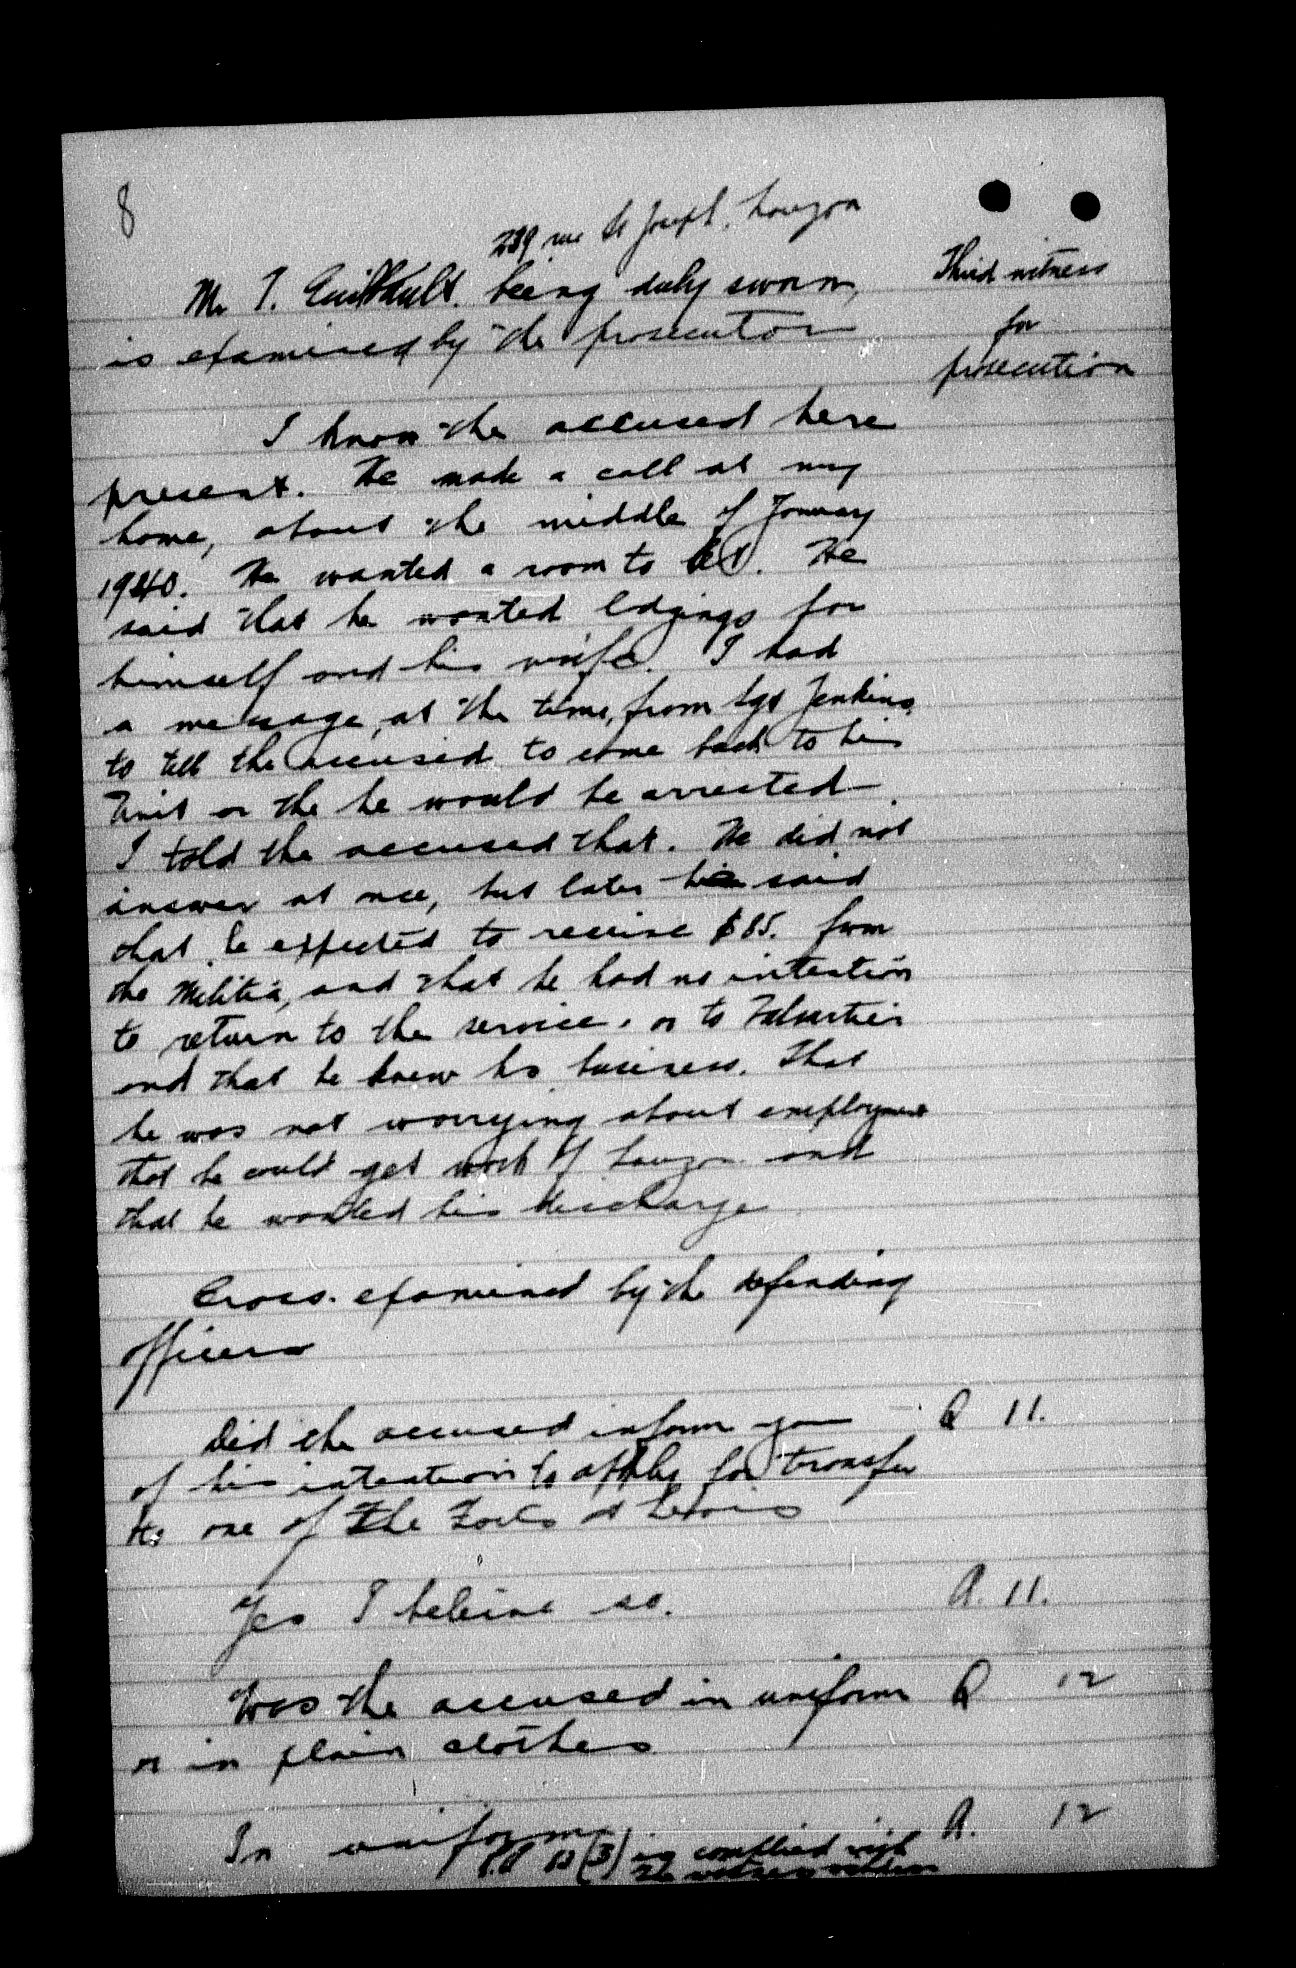 8
239 rue St Joseph, Lauzon
Mr T. Guilbault. being duly sworn,
Third witness
is examined by the prosecutor
for
prosecution
I know the accused here
present. He made a call at my
home, about the middle of January
1940. He wanted a room to let. He
said that he wanted ldgings for
himself and his wife. I had
a message, at the time, from Sgt Jenkins
to tell the accused to come back to his
Unit or the he would be arrested.
I told the accused that. He did not
answer at once, but later he said
that he expected to receive $85. from
the Militia, and that he had no intention
to return to the service, or to Valcartier
and that he knew his business. That
he was not worrying about employment
that he could get work of Lauzon and
that he wanted his discharge
Cross-examined by the defending
officer
Did the accused inform you Q 11.
of his intention to apply for transfer
to one of the Forts at Levis
Yes I beleive so. A. 11.
Was the accused in uniform Q 12
or in plain clothes
In uniform A. 12
(3) is complied with